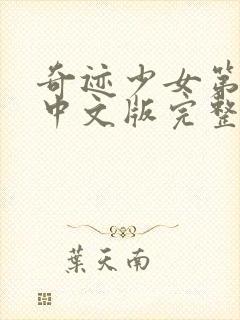 奇迹少女第
中文版完整
葉天南